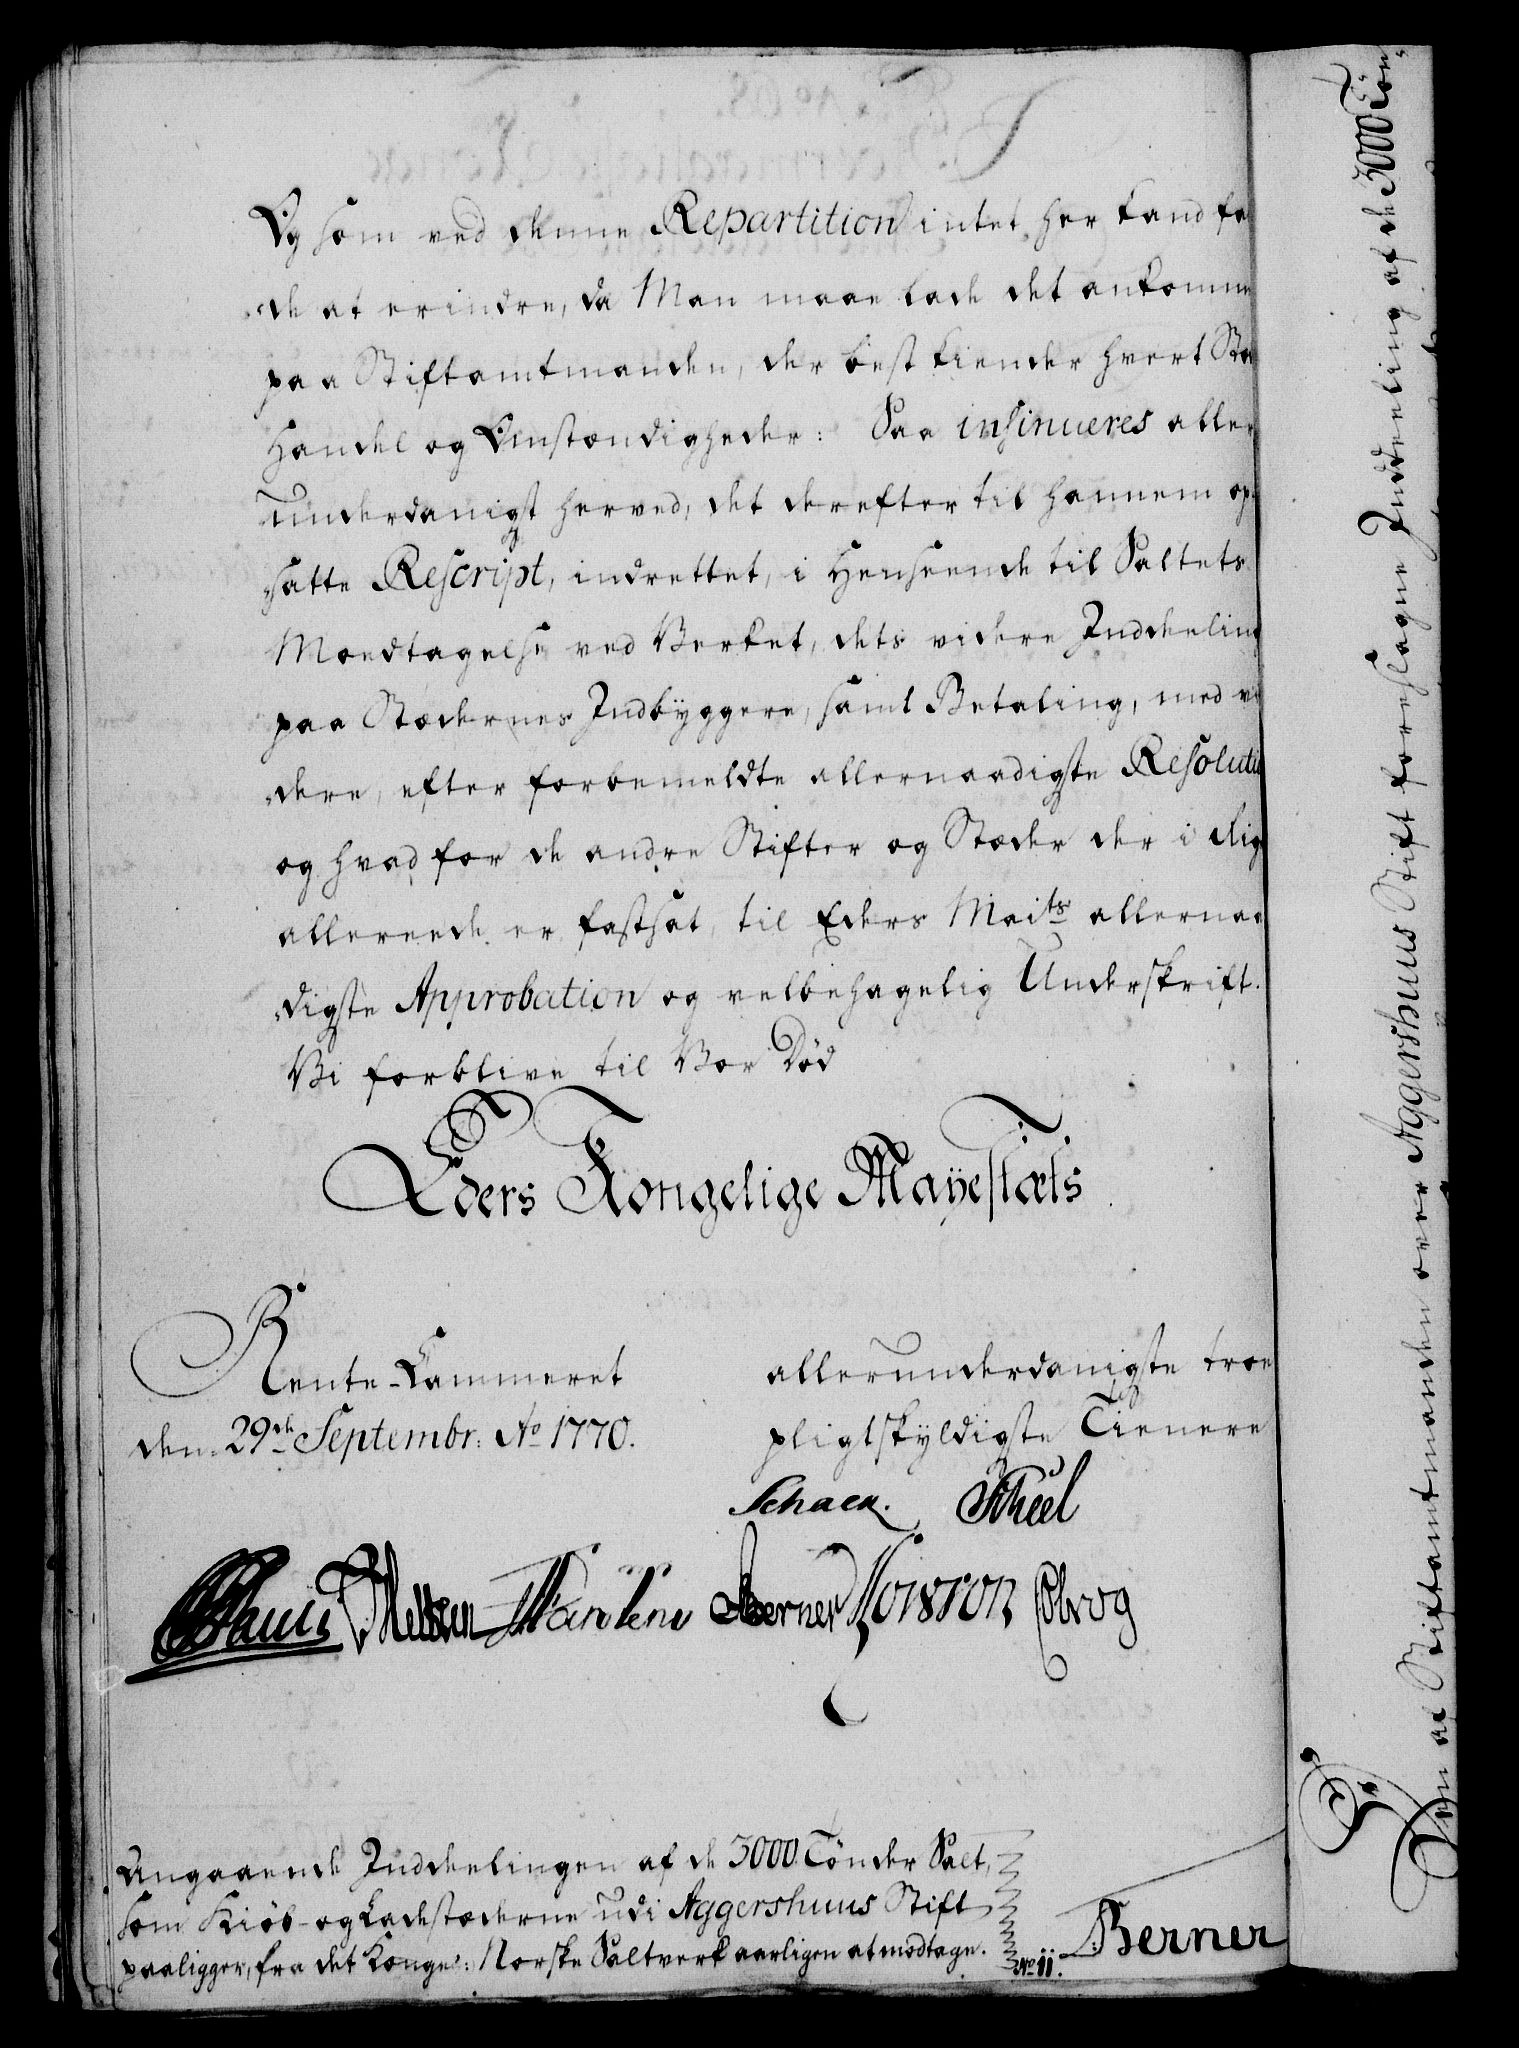 Og som ved denne Repartition intet her kand fa
de at erindre, da Man maae lade det ankomme
paa Stiftamtmanden, der best kiender hvert Stæ
Handel og Omstændigheder: Saa insinueres aller
underdanigst herved, det derefter til hannem op
satte Rescript, indrettet, i Henseende til Saltets
Modtagelse ved Verket, dets videre Inddeeling
paa Stædernes Indbyggere, samt Betaling, med vi
dere, efter forbemeldte allernaadigste Resoluti
og hvad for de andre Stifter og Stæder der i Rig
allereede er fastsat, til Eders Maits allernaa
digste Approbation og velbehagelig Underskrift.
Vi forblive til Vor Død
Eders Kongelige Mayestæts
Rente-Cammeret
den 29de Septembr: Ao 1770.
allerunderdanigste troe
pligtskyldigste Tienere
Schack. Scheel
Berner
Angaaende Inddeelingen af de 3000 Tönder Salt,
som Kiöb- og Ladestæderne udi Aggershuus Stift
paaligger, fra det Konge: Norske Saltverk aarligen at modtage.
No 11.
Berner
Den af Stiftamtmanden over Aggershuus Stift foreslagne Inddeeling af de 3000 Tön-